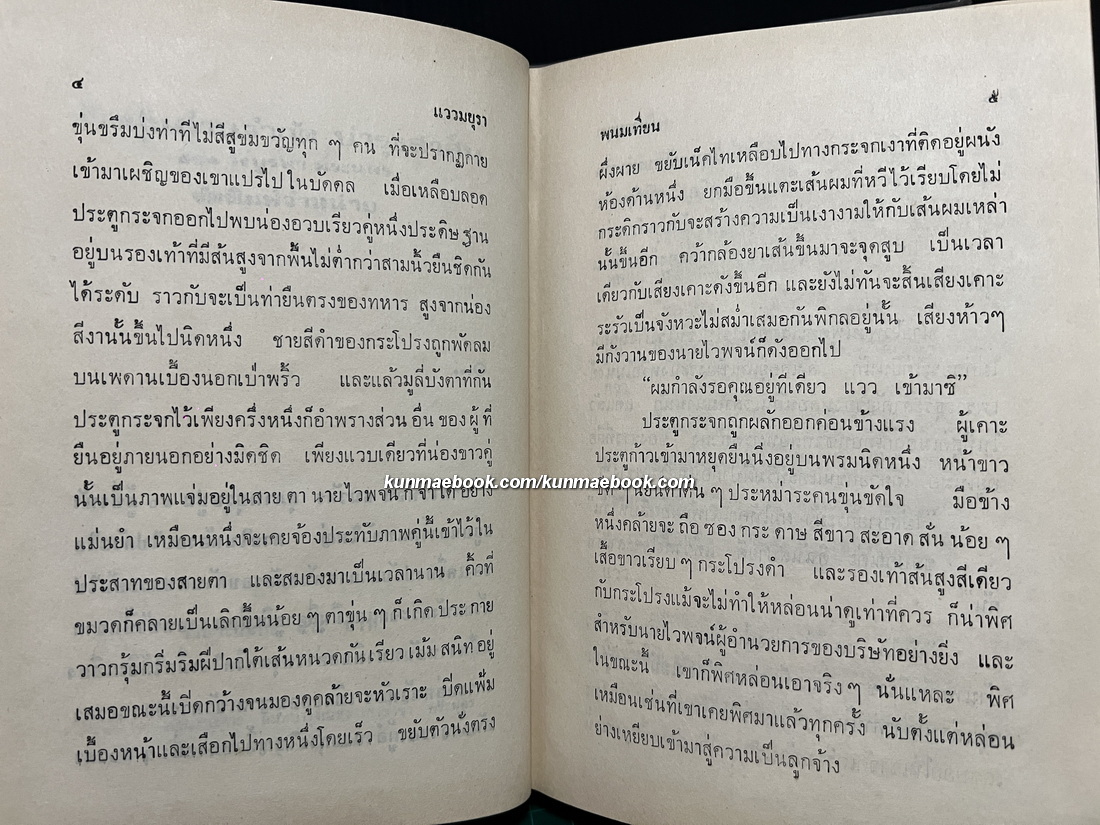 ๔
แววมยุรา
ขุ่นขรึมบ่งท่าทีไม่สีสูข่มขวัญทุก ๆ คน ที่จะปรากฏกาย
เข้ามาเผชิญของเขาแปรไปในบัดดล เมื่อเหลือบลอด
ประตูกระจกออกไปพบน่องอวบเรียวคู่หนึ่งประดิษฐาน
อยู่บนรองเท้าที่มีส้นสูงจากพื้นไม่ต่ำกว่าสามนิ้วยืนชิดกัน
ได้ระดับ ราวกับจะเป็นท่ายืนตรงของทหาร สูงจากน่อง
สีงานั้นขึ้นไปนิดหนึ่ง ชายสีดำของกระโปรงถูกพัดลม
บนเพดานเบื้องนอกเป่าพริ้ว และแล้วมูลี่บังตาที่กัน
ประตูกระจกไว้เพียงครึ่งหนึ่งก็อำพรางส่วนอื่นของผู้ที่
ยืนอยู่ภายนอกอย่างมิดชิด เพียงแวบเดียวที่น่องขาวคู่
นั้นเป็นภาพแจ่มอยู่ในสายตา นายไวพจน์ก็จำได้อย่าง
แม่นยำ เหมือนหนึ่งจะเคยจ้องประทับภาพคู่นี้เข้าไว้ใน
ประสาทของสายตา และสมองมาเป็นเวลานาน คิ้วที่
ขมวดก็คลายเป็นเลิกขึ้นน้อย ๆ ตาขุ่น ๆ ก็เกิดประกาย
วาวกรุ้มกริ่มริมฝีปากใต้เส้นหนวดกันเรียวเม้มสนิทอยู่
เสมอขณะนี้เปิดกว้างจนมองดูคล้ายจะหัวเราะ ปิดแฟ้ม
เบื้องหน้าและเสือกไปทางหนึ่งโดยเร็ว ขยับตัวนั่งตรง
๕
พนมเทียน
ผึ่งผาย ขยับเน็คไทเหลือบไปทางกระจกเงาที่ติดอยู่ผนัง
ห้องด้านหนึ่ง ยกมือขึ้นแตะเส้นผมที่หวีไว้เรียบโดยไม่
กระดิกราวกับจะสร้างความเป็นเงางามให้กับเส้นผมเหล่า
นั้นขึ้นอีก คว้ากล้องยาเส้นขึ้นมาจะจุดสูบ เป็นเวลา
เดียวกับเสียงเคาะดังขึ้นอีก และยังไม่ทันจะสิ้นเสียงเคาะ
ระรัวเป็นจังหวะไม่สม่ำเสมอกันพิกลอยู่นั้น เสียงห้าวๆ
มีกังวานของนายไวพจน์ก็ดังออกไป
“ผมกำลังรอคุณอยู่ทีเดียว แวว เข้ามาซิ”
ประตูกระจกถูกผลักออกค่อนข้างแรง ผู้เคาะ
ประตูก้าวเข้ามาหยุดยืนนิ่งอยู่บนพรมนิดหนึ่ง หน้าขาว
ซีด ๆ นัยน์ตาตื่น ๆ ประหม่าระคนขุ่นขัดใจ มือข้าง
หนึ่งคล้ายจะถือซองกระดาษสีขาวสะอาดสั่นน้อย ๆ
เสื้อขาวเรียบ ๆ กระโปรงดำ และรองเท้าส้นสูงสีเดียว
กับกระโปรงแม้จะไม่ทำให้หล่อนน่าดูเท่าที่ควร ก็น่าพิศ
สำหรับนายไวพจน์ผู้อำนวยการของบริษัทอย่างยิ่ง และ
ในขณะนี้ เขาก็พิศหล่อนเอาจริง ๆ นั่นแหละ พิศ
เหมือนเช่นที่เขาเคยพิศมาแล้วทุกครั้ง นับตั้งแต่หล่อน
ย่างเหยียบเข้ามาสู่ความเป็นลูกจ้าง
kunmaebook.com/kunmaebook.com